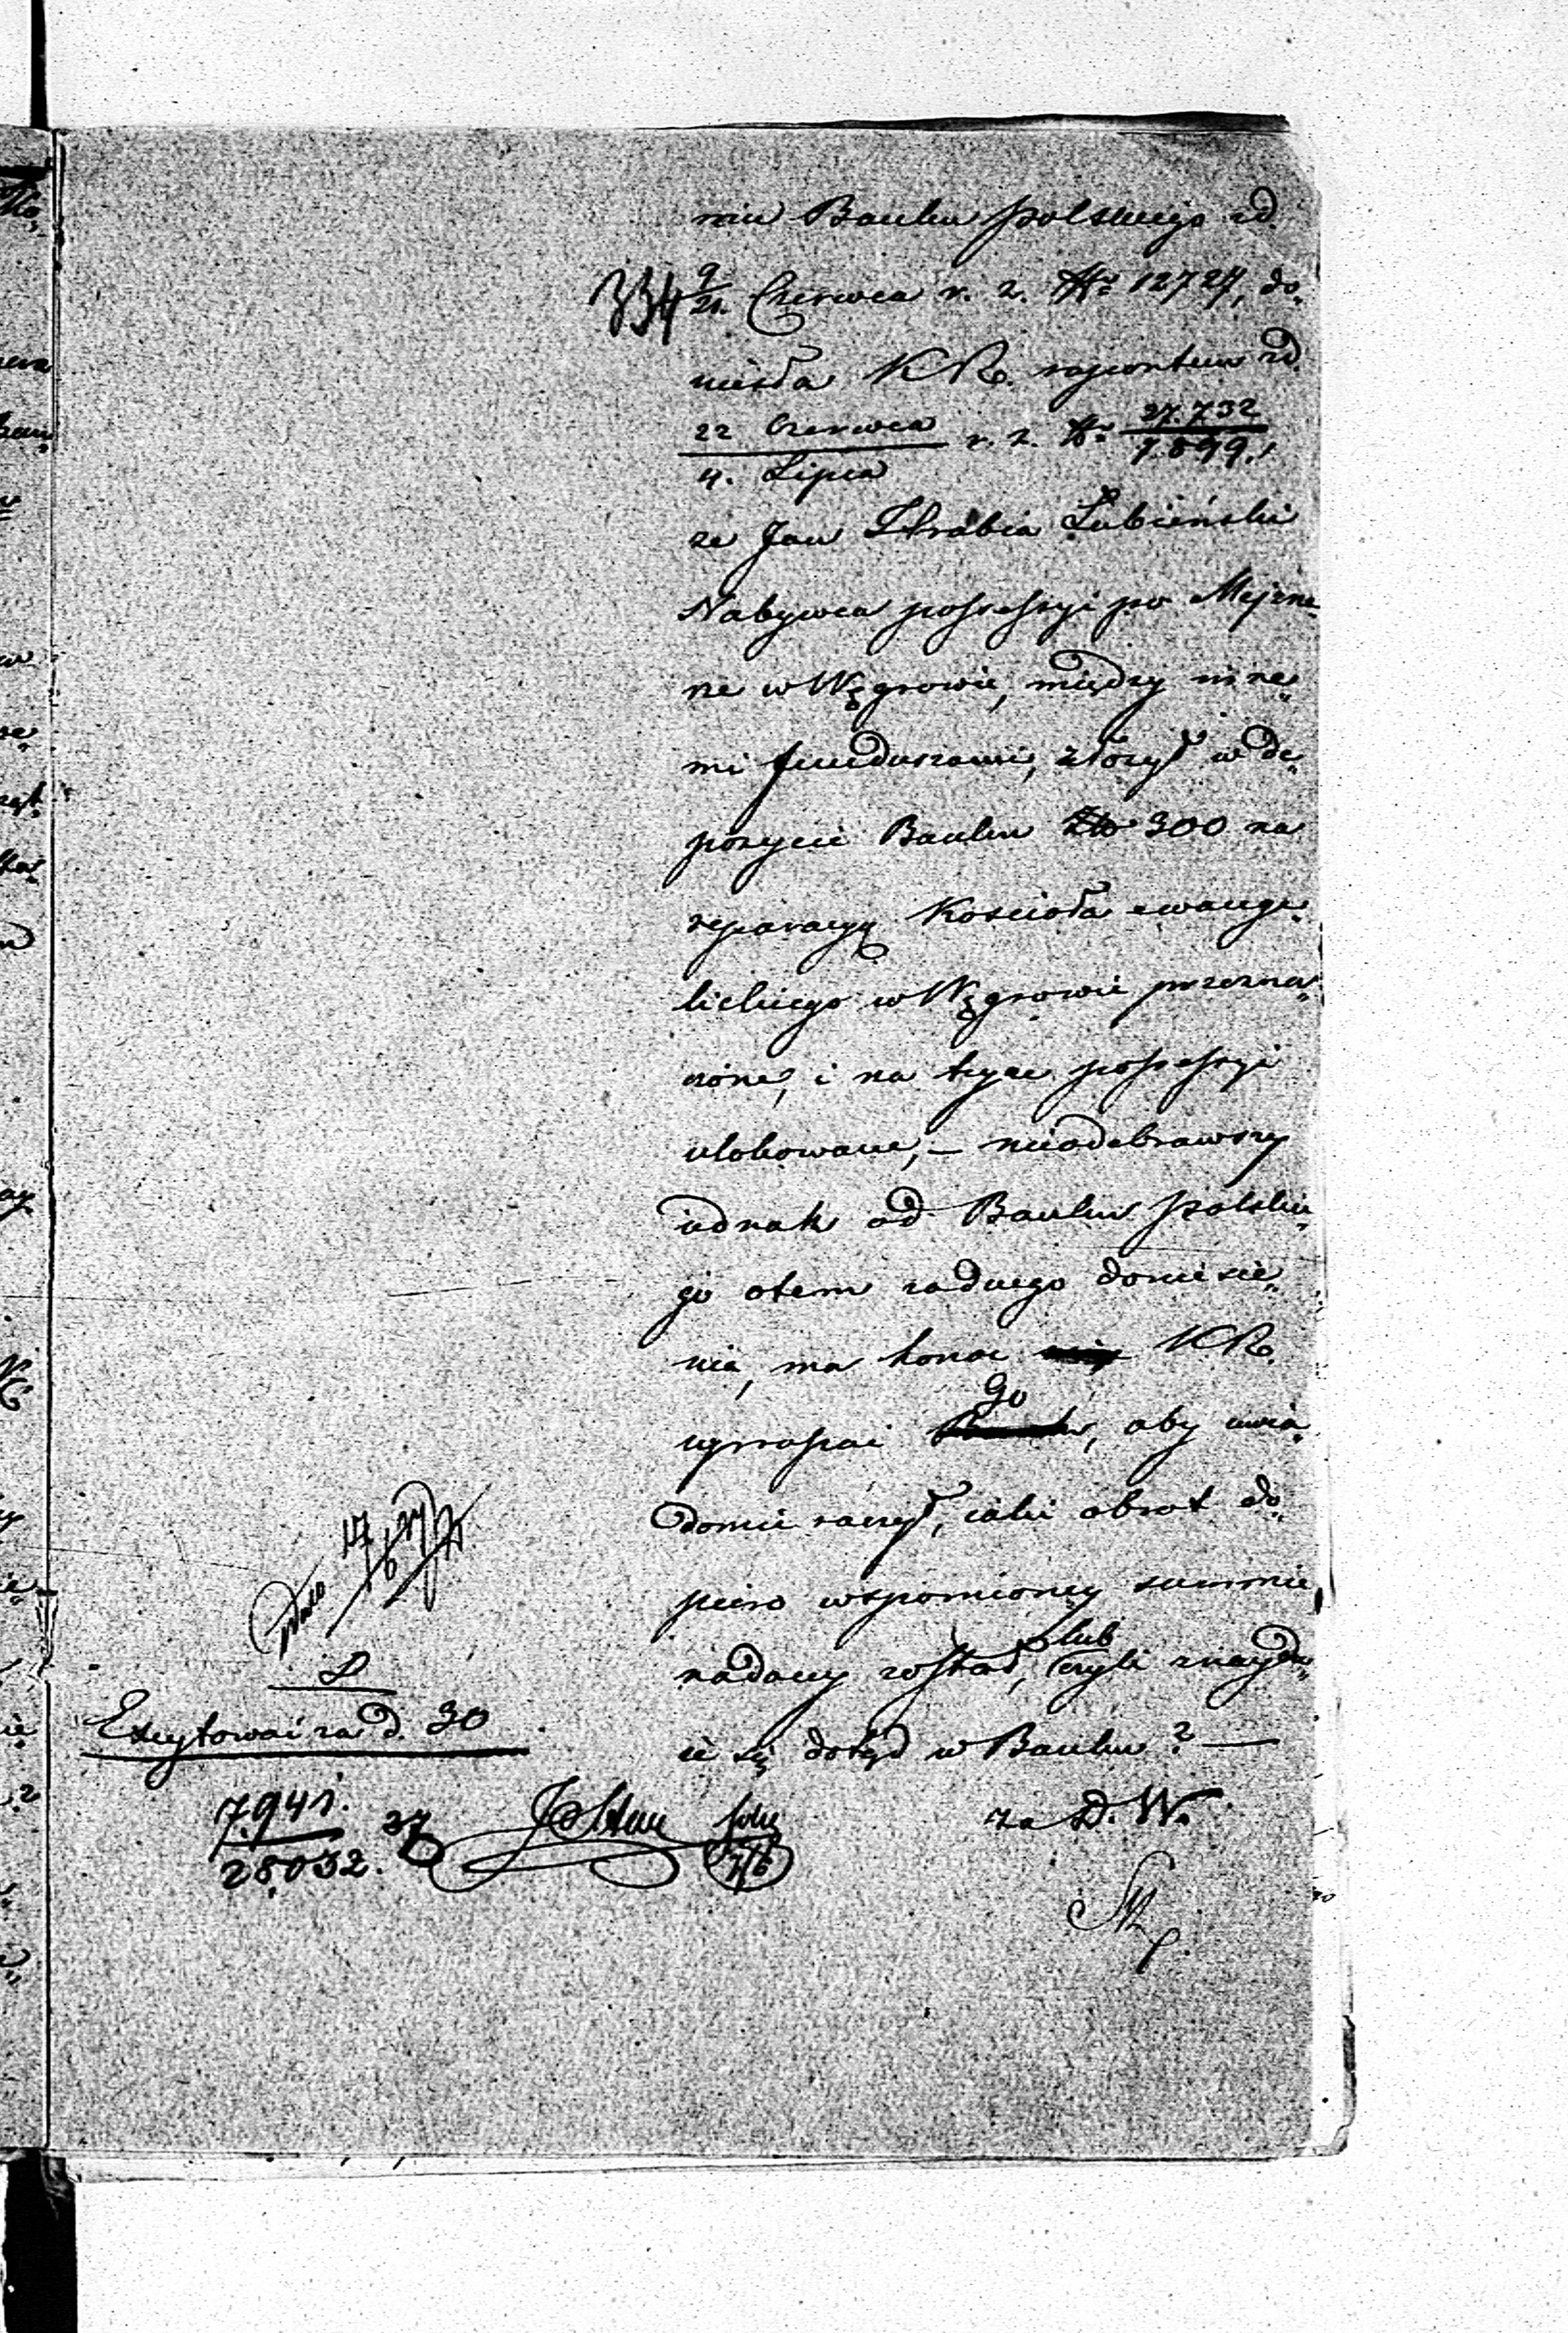 niu Banku polskiego zd.
334 9/21. Czerwca r. z. Nr 12724, do„
niosła KR. raportem zd.
22 Czerwca / 4. Lipca r. z. Nr 27.732 / 7.899.,
że Jan Hrabia Łubieński
Nabywca possessyi po Mejzne„
ne w Węgrowie, między inne„
mi funduszami, złożył w de„
pozycie Banku Złp 300 na
reparacyę Kościoła ewange„
lickiego w Węgrowie przezna„
czone, i na teyże possessyi
ulokowane, – nieodebrawszy
iednak od Banku polskie„
go otem żadnego doniesie„
nia, ma honor KR.
upraszać Go, aby uwia„
domić raczył, iaki obrot do„
piero wspomioney summie
nadany został, lub czyli znaydu„
ie się dotąd w Banku? —
za D. W.
Excytować za d. 30
7.941.
28032.
37